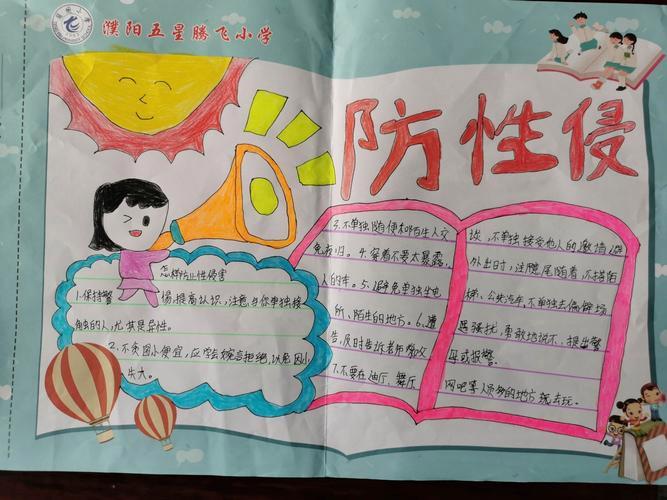 濮阳五星腾飞小学
防性侵
怎样防止性侵害
1.保持警惕,提高认识,注意与你单独接
触的人,尤其是异性。
2.不贪图小便宜,应学会婉言拒绝,以免因小
失大。
3.不单独随便和陌生人交谈,不单独接受他人的邀请,避
免夜归。4.穿着不要太暴露,外出时,注意尾随者,不搭陌
人的车。5.避免单独坐电梯、公共汽车,不单独去偏僻场
所、陌生的地方。6.遭遇强扰,勇敢地说不,提出警
告,及时告诉老师
母或报警。
7.不要在迪厅、舞厅网吧等人员多的地方玩去玩。